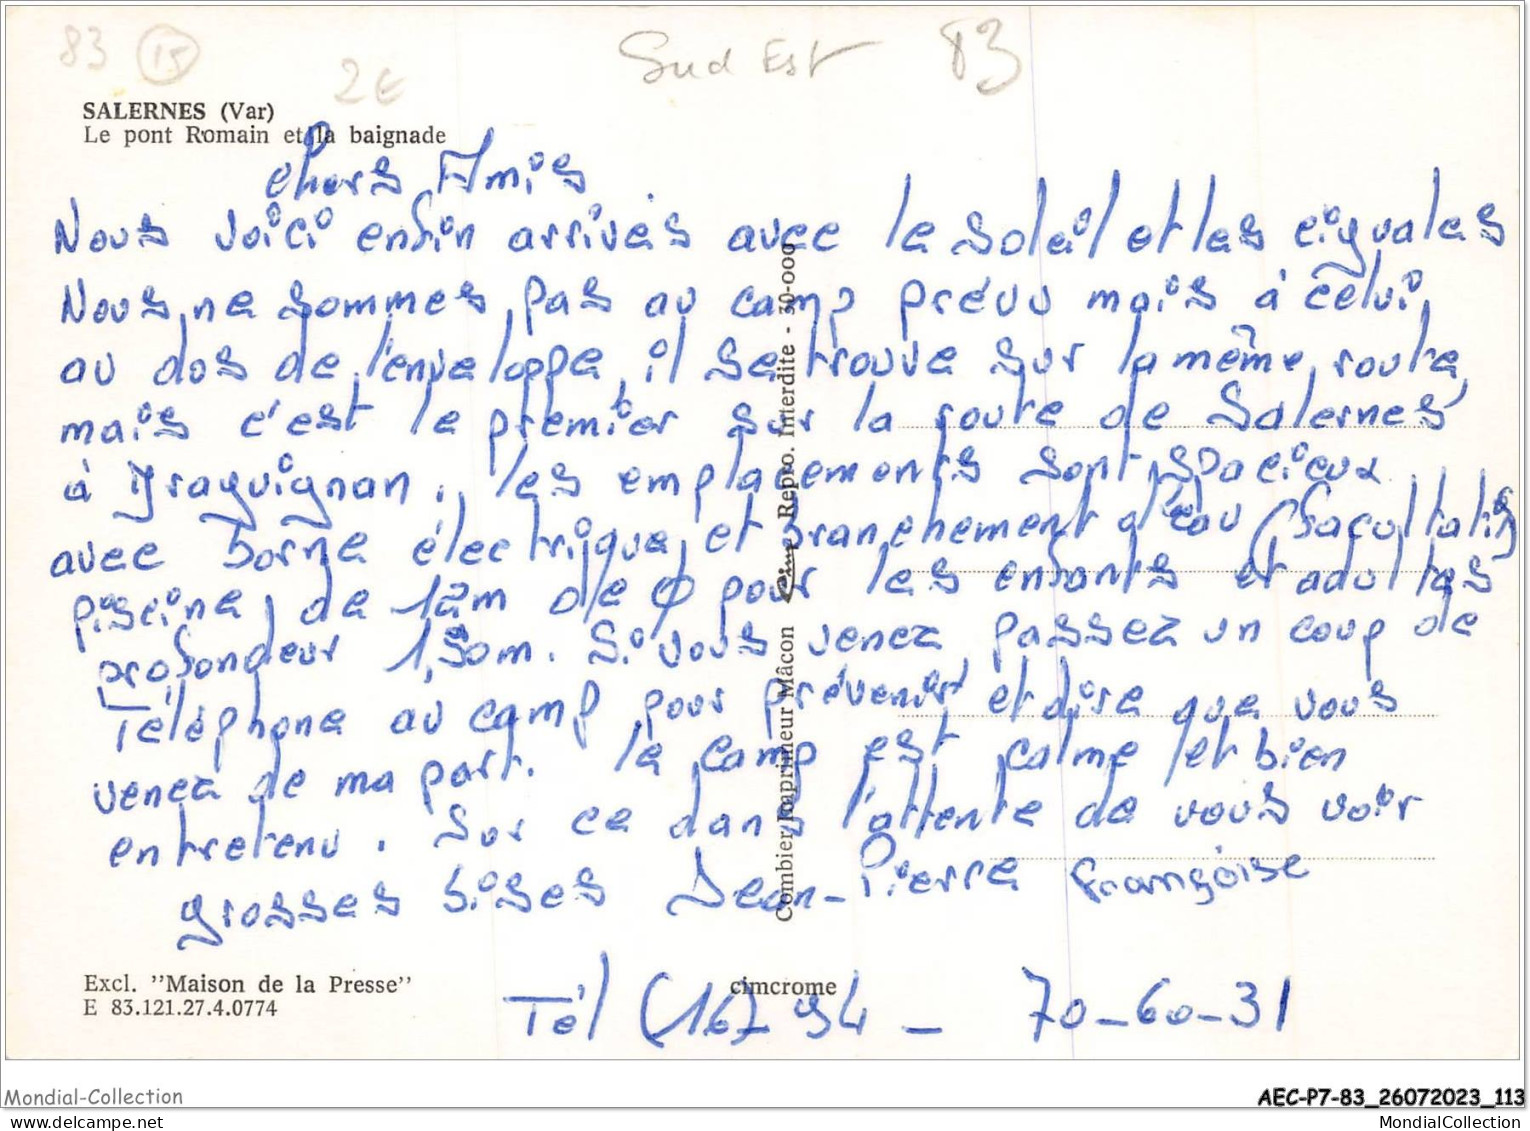 83 15
2€
Sud Est 83
SALERNES (Var)
Le pont Romain et la baignade
chers Amis
Nous voici enfin arrivés avec le soleil et les ciguales
Nous ne sommes pas au camp prévu mais à celui
au dos de l'enveloppe, il se trouve sur la même route,
mais c'est le premier sur la route de Salernes
à Draguignan. les emplacements sont spacieux
avec borne électrique et branchement d'eau (facultatif)
piscine de 12m de φ pour les enfants et adultes
profondeur 1,50m. Si vous venez passez un coup de
Téléphone au camp pour prévenir et dire que vous
venez de ma part. le camp est calme et bien
entretenu. Sur ce dans l'attente de vous voir
grosses bises Jean-Pierre Françoise
Tél (16) 94 - 70-60-31
Combier Imprimeur Mâcon Cim Repro. Interdite - 30-000
Excl. "Maison de la Presse"
E 83.121.27.4.0774
cimcrome
Mondial-Collection
AEC-P7-83_26072023_113
mondial-collection
MondialCollection